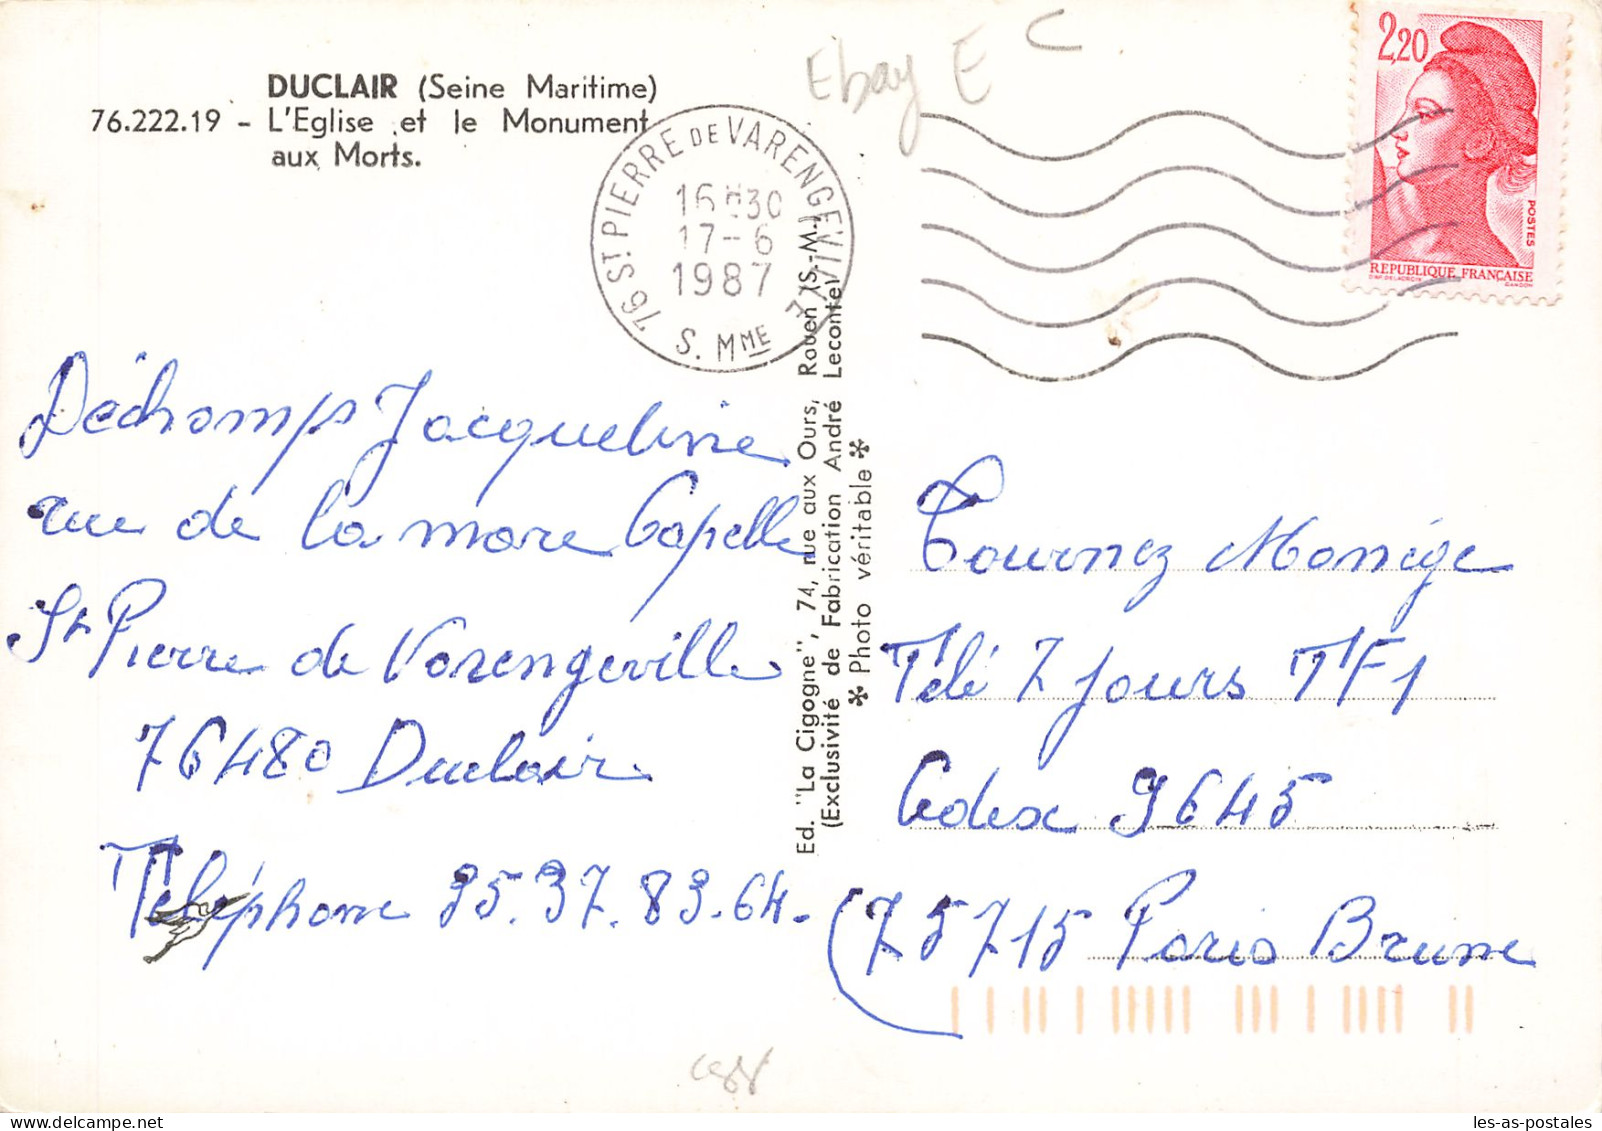 DUCLAIR (Seine Maritime)
76.222.19 - L'Eglise et le Monument
aux Morts.
Ebay E C
76 ST PIERRE DE VARENGEVILLE
16H30
17-6
1987
S. MME
2,20
POSTES
REPUBLIQUE FRANÇAISE
GANDON
Déchamps Jacqueline
rue de la mare Capelle
St Pierre de Varengeville
76480 Duclair
Téléphone 35.37.83.64.
Ed. "La Cigogne", 74, rue aux Ours, Rouen (S.-M.)
(Exclusivité de Fabrication André Leconte)
* Photo véritable *
Tournez Manège
Télé 7 Jours TF1
Cedex 9645
(75715 Paris Brune
les-as-postales